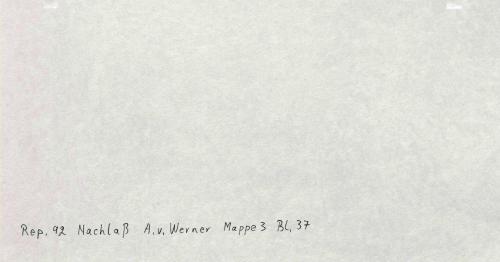 Rep. 92 Nachlaß A.v. Werner Mappe 3 Bl. 37